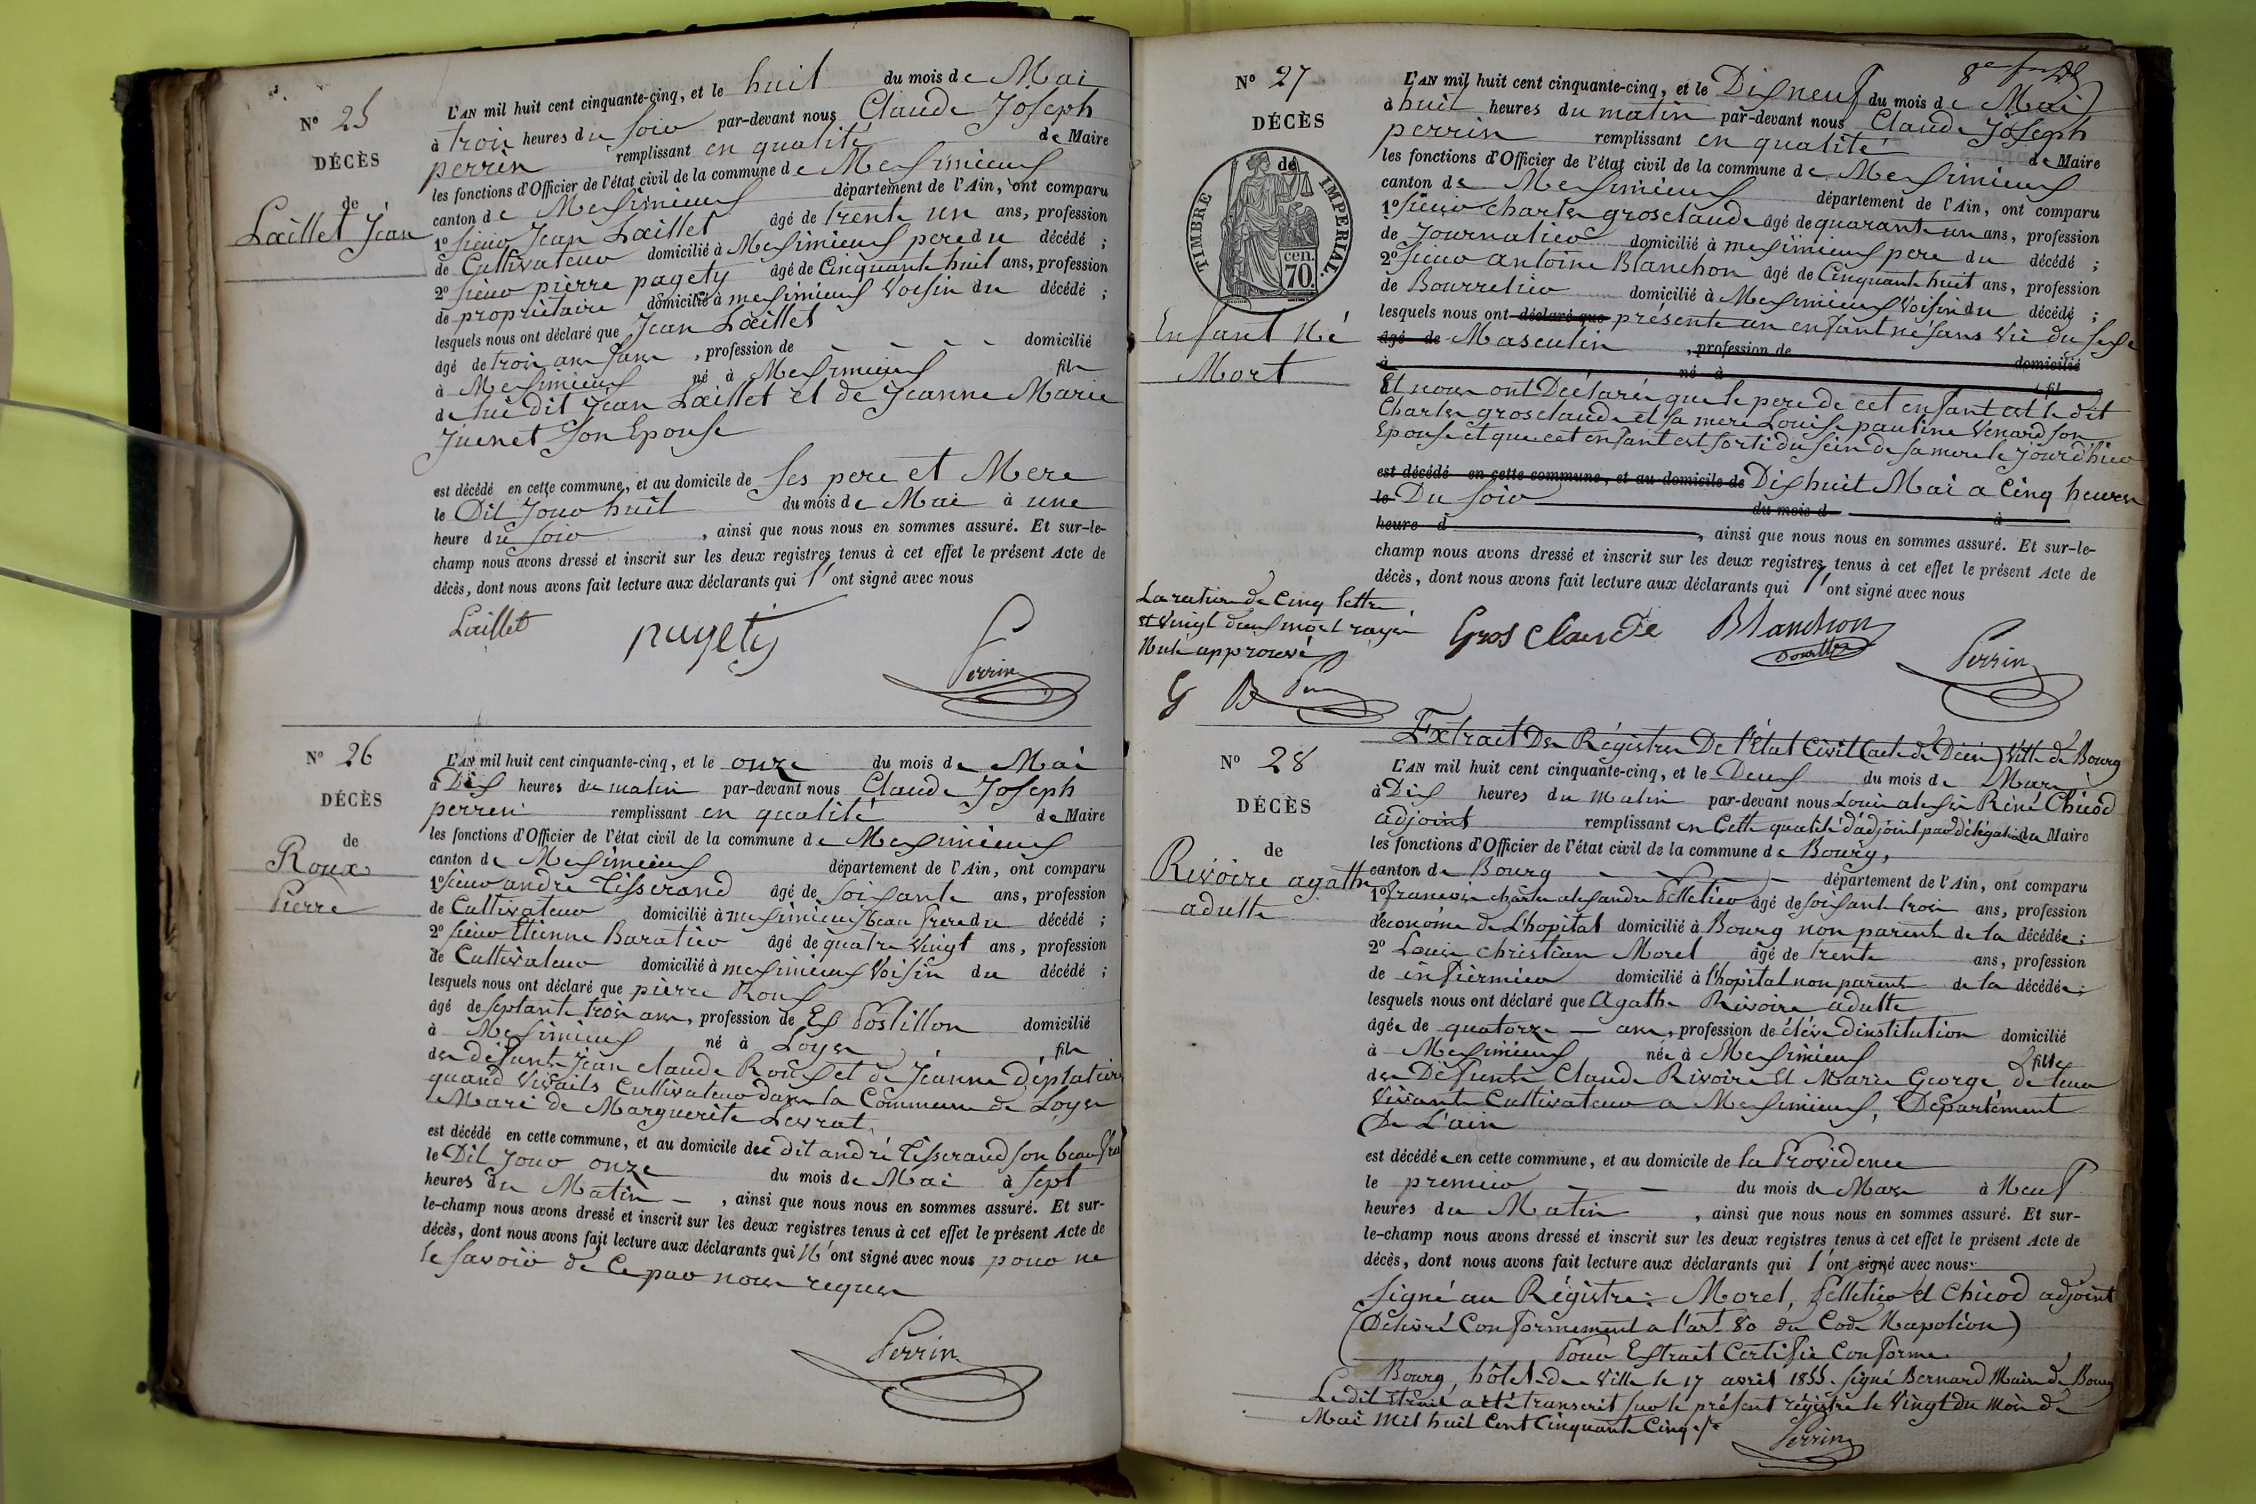 N° 25
DÉCÈS
de
Lœillet Jean
L'AN mil huit cent cinquante-cinq, et le huit du mois de Mai
à trois heures du soir par-devant nous Claude Joseph
perrin remplissant en qualité de Maire
les fonctions d'Officier de l'état civil de la commune de Meximieux
canton de Meximieux département de l'Ain, ont comparu
1° sieur Jean Lœillet âgé de trente un ans, profession
de Cultivateur domicilié à Meximieux pere du décédé ;
2° sieur pierre pagety âgé de Cinquante huit ans, profession
de propriétaire domicilié à meximieux Voisin du décédé ;
lesquels nous ont déclaré que Jean Lœillet
âgé de trois ans , profession de domicilié
à Meximieux né à Meximieux fils
de lui dit Jean Lœillet et de Jeanne Marie
Juenet son Epouse
est décédé en cette commune, et au domicile de ses pere et Mere
le Dit Jour huit du mois de Mai à une
heure du soir , ainsi que nous nous en sommes assuré. Et sur-le-
champ nous avons dressé et inscrit sur les deux registres tenus à cet effet le présent Acte de
décès, dont nous avons fait lecture aux déclarants qui l'ont signé avec nous
Lœillet pagety Perrin
N° 26
DÉCÈS
de
Roux
Pierre
L'AN mil huit cent cinquante-cinq, et le onze du mois de Mai
à Dix heures du matin par-devant nous Claude Joseph
perrin remplissant en qualité de Maire
les fonctions d'Officier de l'état civil de la commune de Meximieux
canton de Meximieux département de l'Ain, ont comparu
1° sieur andré Tisserand âgé de soixante ans, profession
de Cultivateur domicilié à meximieux beau frere du décédé ;
2° sieur Etienne Baratier âgé de quatre Vingt ans, profession
de Cultivateur domicilié à meximieux Voisin du décédé ;
lesquels nous ont déclaré que pierre Roux
âgé de septante trois ans, profession de Ex Postillon domicilié
à Meximieux né à Loyes fils
des défunts Jean claude Roux et de Jeanne
quand Vivaits Cultivateur dans la Commune de Loyes
Mari de Marguerite Levrat
est décédé en cette commune, et au domicile du dit andré Tisserand son beau fre
le Dit Jour onze du mois de Mai à sept
heures du Matin , ainsi que nous nous en sommes assuré. Et sur-
le-champ nous avons dressé et inscrit sur les deux registres tenus à cet effet le présent Acte de
décès, dont nous avons fait lecture aux déclarants qui N'ont signé avec nous pour ne
le savoir de Ce par nous requis
Perrin
N° 27
DÉCÈS
de
TIMBRE IMPERIAL.
70 cen.
Enfant Né
Mort
L'AN mil huit cent cinquante-cinq, et le Dix neuf du mois de Mai
à huit heures du matin par-devant nous Claude Joseph
perrin remplissant en qualité de Maire
les fonctions d'Officier de l'état civil de la commune de Meximieux
canton de Meximieux département de l'Ain, ont comparu
1° sieur charles grosclaude âgé de quarante un ans, profession
de Journalier domicilié à meximieux pere du décédé ;
2° sieur antoine Blanchon âgé de Cinquante huit ans, profession
de Bourrelier domicilié à Meximieux Voisin du décédé ;
lesquels nous ont déclaré que présenté un enfant né sans Vie du sexe
âgé de Masculin , profession de
à né à domicilié
fil
Et nous ont Déclarés que le pere de cet enfant est le dit
Charles grosclaude et sa mere Louise pauline Venard son
Epouse et que cet enfant est sorti du sein de sa mere le jour d'hier
est décédé en cette commune, et au domicile de Dix huit Mai a Cinq heures
le Du soir du mois d à
heure d , ainsi que nous nous en sommes assuré. Et sur-le-
champ nous avons dressé et inscrit sur les deux registres tenus à cet effet le présent Acte de
décès, dont nous avons fait lecture aux déclarants qui l'ont signé avec nous
La rature de Cinq lettre
et Vingt deux mot rayés
Nuls approuvé
Gros claude Blanchon Perrin
G B Perrin
N° 28
DÉCÈS
de
Rivoire agathe
adulte
Extrait Des Régistres De l'Etat Civil (acte de Décès) Ville de Bourg
L'AN mil huit cent cinquante-cinq, et le Deux du mois de Mars
à Dix heures du Matin par-devant nous Louis alexis René Chicod
adjoint remplissant en Cette qualité d'adjoint par délégation du Maire
les fonctions d'Officier de l'état civil de la commune de Bourg,
canton de Bourg département de l'Ain, ont comparu
1° francois charles alexandre Pelletier âgé de soixante trois ans, profession
d'économe de L'hopital domicilié à Bourg non parent de la décédée ;
2° Louis christian Morel âgé de trente ans, profession
de infirmier domicilié à l'hopital non parent de la décédée ;
lesquels nous ont déclaré que Agathe Rivoire adulte
âgée de quatorze ans, profession de élève d'institution domicilié
à Meximieux née à Meximieux fille
des Défunts Claude Rivoire Et Marie George, de leur
Vivant Cultivateur a Meximieux, Département
De L'ain
est décédée en cette commune, et au domicile de la Providence
le premier du mois de Mars à Neuf
heures du Matin , ainsi que nous nous en sommes assuré. Et sur-
le-champ nous avons dressé et inscrit sur les deux registres tenus à cet effet le présent Acte de
décès, dont nous avons fait lecture aux déclarants qui l'ont signé avec nous
signé au Régistre: Morel, Pelletier et Chicod adjoint
(Délivré Conformement a l'art. 80 du Code Napoléon)
Pour Extrait Certifié Conforme
Bourg, hôtel de Ville le 17 avril 1855. signé Bernard Maire de Bourg
Le dit Extrait a été transcrit sur le présent régistre le Vingt du Mois de
Mai Mil huit Cent Cinquante Cinq ./.
Perrin